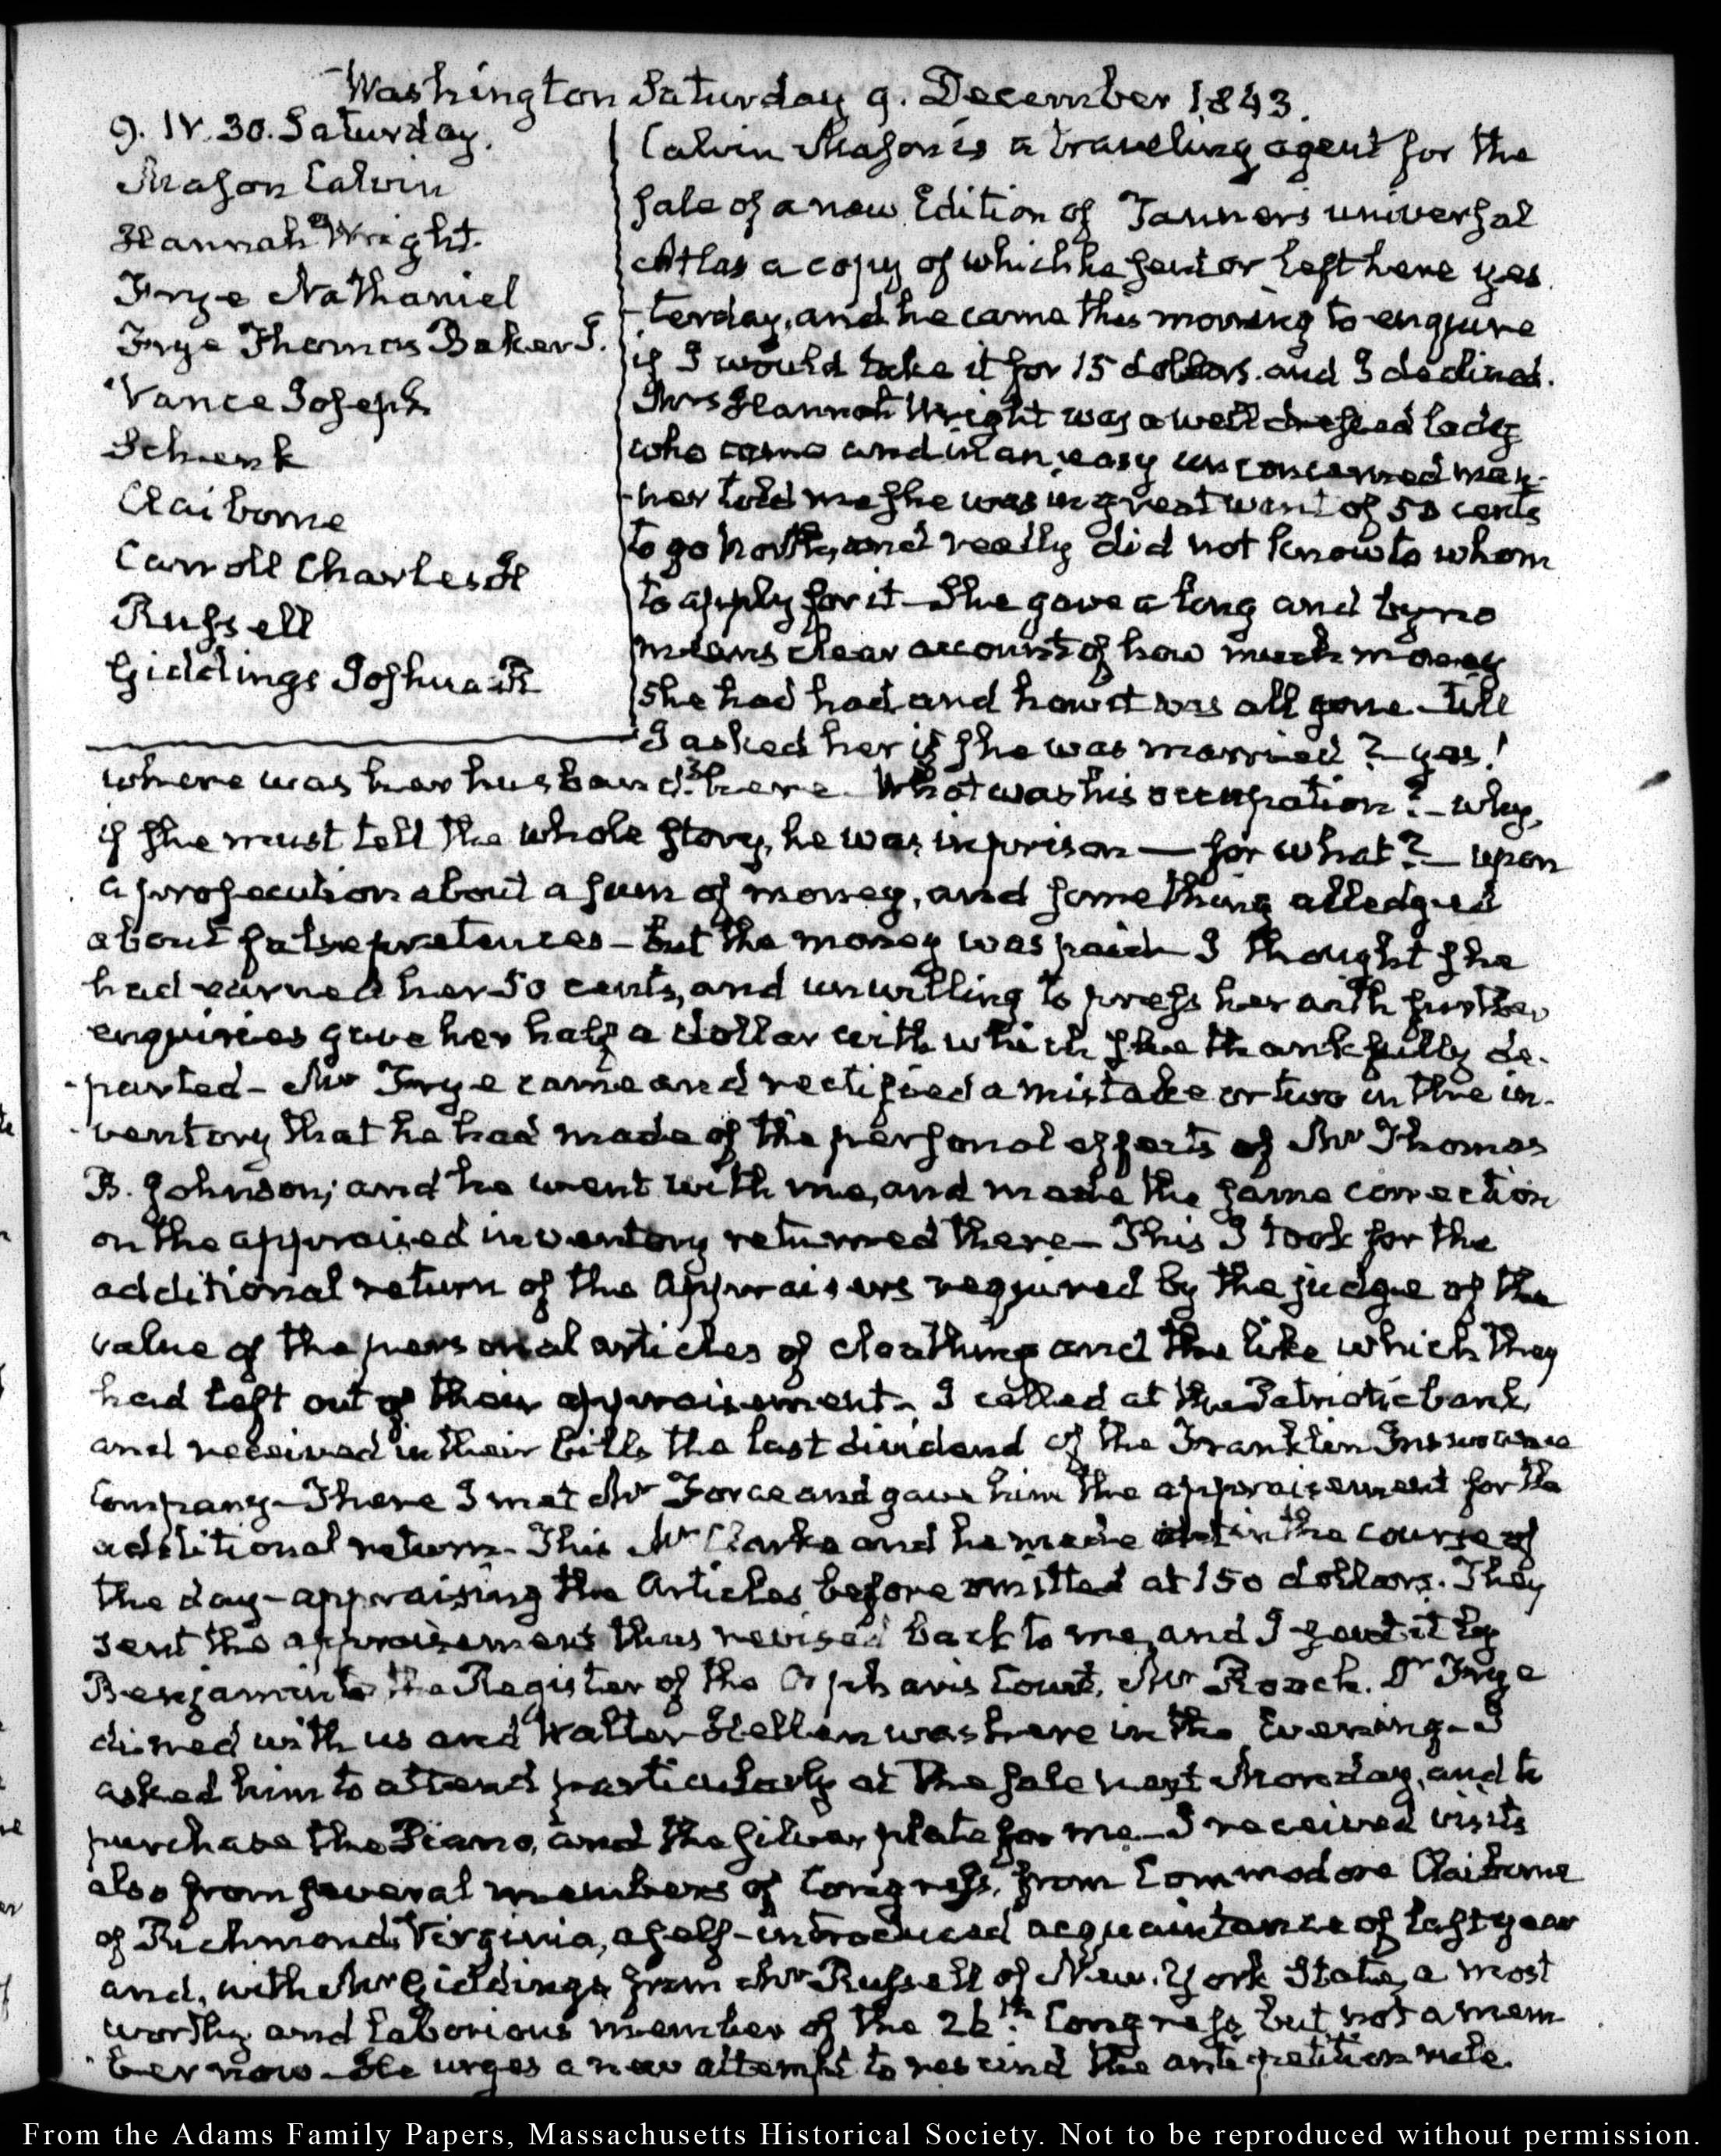 Washington Saturday 9. December 1843.
9. IV. 30. Saturday.
Mason Calvin
Hannah Wright
Frye Nathaniel
Frye Thomas Baker J.
Vance Joseph
Schenk
Claiborne
Carroll Charles H
Russell
Giddings Joshua R
Calvin Mason is a traveling agent for the
sale of a new Edition of Tanner's universal
Atlas a copy of which he sent or left here yes
-terday, and he came this morning to enquire
if I would take it for 15 dollars. and I declined.
Mrs Hannah Wright was a well dressed lady
who came and in an easy unconcerned man-
-ner told me she was in great want of 50 cents
to go north, and really did not know to whom
to apply for it— She gave a long and by no
means clear account of how much money
she had had and how it was all gone— till
I asked her if she was married?— yes!
where was her husband? here. What was his occupation?— why,
if she must tell the whole story, he was in prison— for what?— upon
a prosecution about a sum of money, and something alledged
about false pretences— but the money was paid— I thought she
had earned her 50 cents, and unwilling to press her with further
enquiries gave her half a dollar with which she thankfully de-
-parted— Mr Frye came and rectified a mistake or two in the in-
-ventory that he had made of the personal effects of Mr Thomas
B. Johnson; and he went with me, and made the same correction
on the appraised inventory returned there— This I took for the
additional return of the Appraisers required by the judge of the
value of the personal articles of cloathing and the like which they
had left out of their appraisement— I called at the Patriotic bank,
and received in their bills the last dividend of the Franklin Insurance
Company— There I met Mr Force and gave him the appraisement for the
additional return— This Mr Clarke and he made out in the course of
the day— appraising the Articles before omitted at 150 dollars. They
sent the appraisement thus revised back to me, and I sent it by
Benjamin to the Register of the Orphan's Court, Mr Roach. Dr Frye
dined with us and Walter Hellen was here in the Evening— I
asked him to attend particularly at the sale next Monday, and to
purchase the Piano, and the silver plate for me— I received visits
also from several members of Congress, from Commodore Claiborne
of Richmond, Virginia, a self-introduced acquaintance of last year
and, with Mr Giddings from Mr Russell of New. York State, a most
worthy and laborious member of the 26th. Congress, but not a mem
-ber now— He urges a new attempt to rescind the anti petition rule.
From the Adams Family Papers, Massachusetts Historical Society. Not to be reproduced without permission.